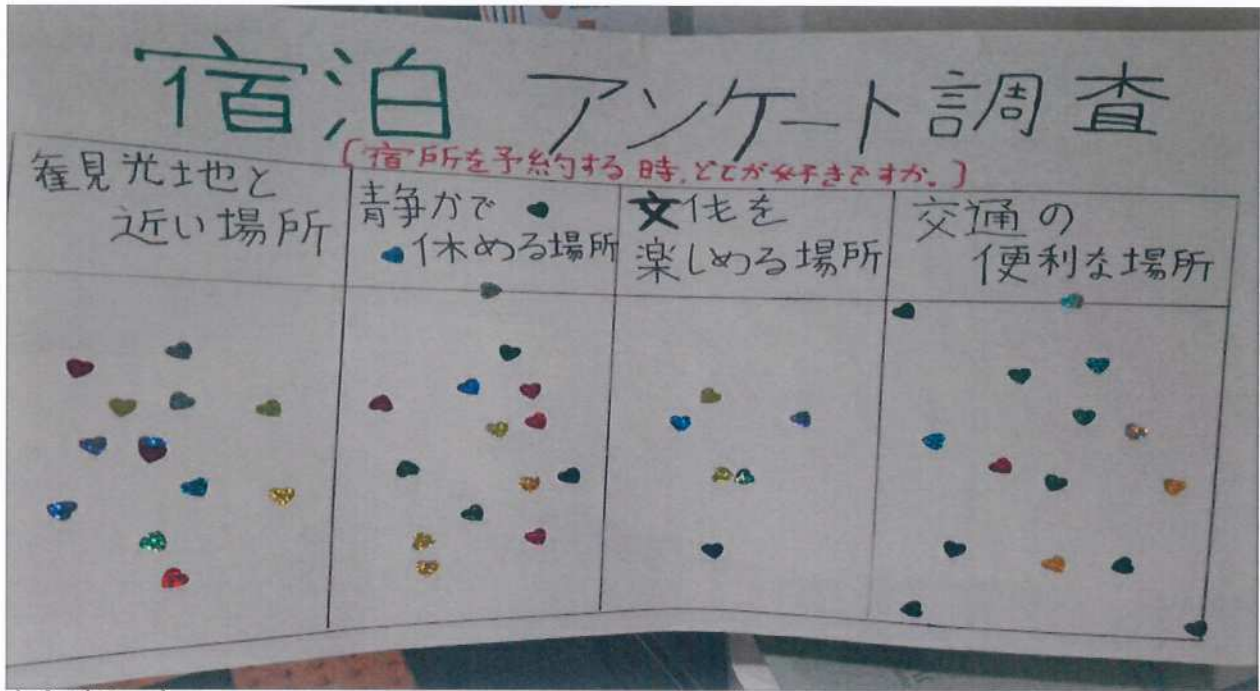 宿泊 アンケート調査
[宿所を予約する時、どこが好きですか。]
観光地と
近い場所
静かで
休める場所
文化を
楽しめる場所
交通の
便利な場所